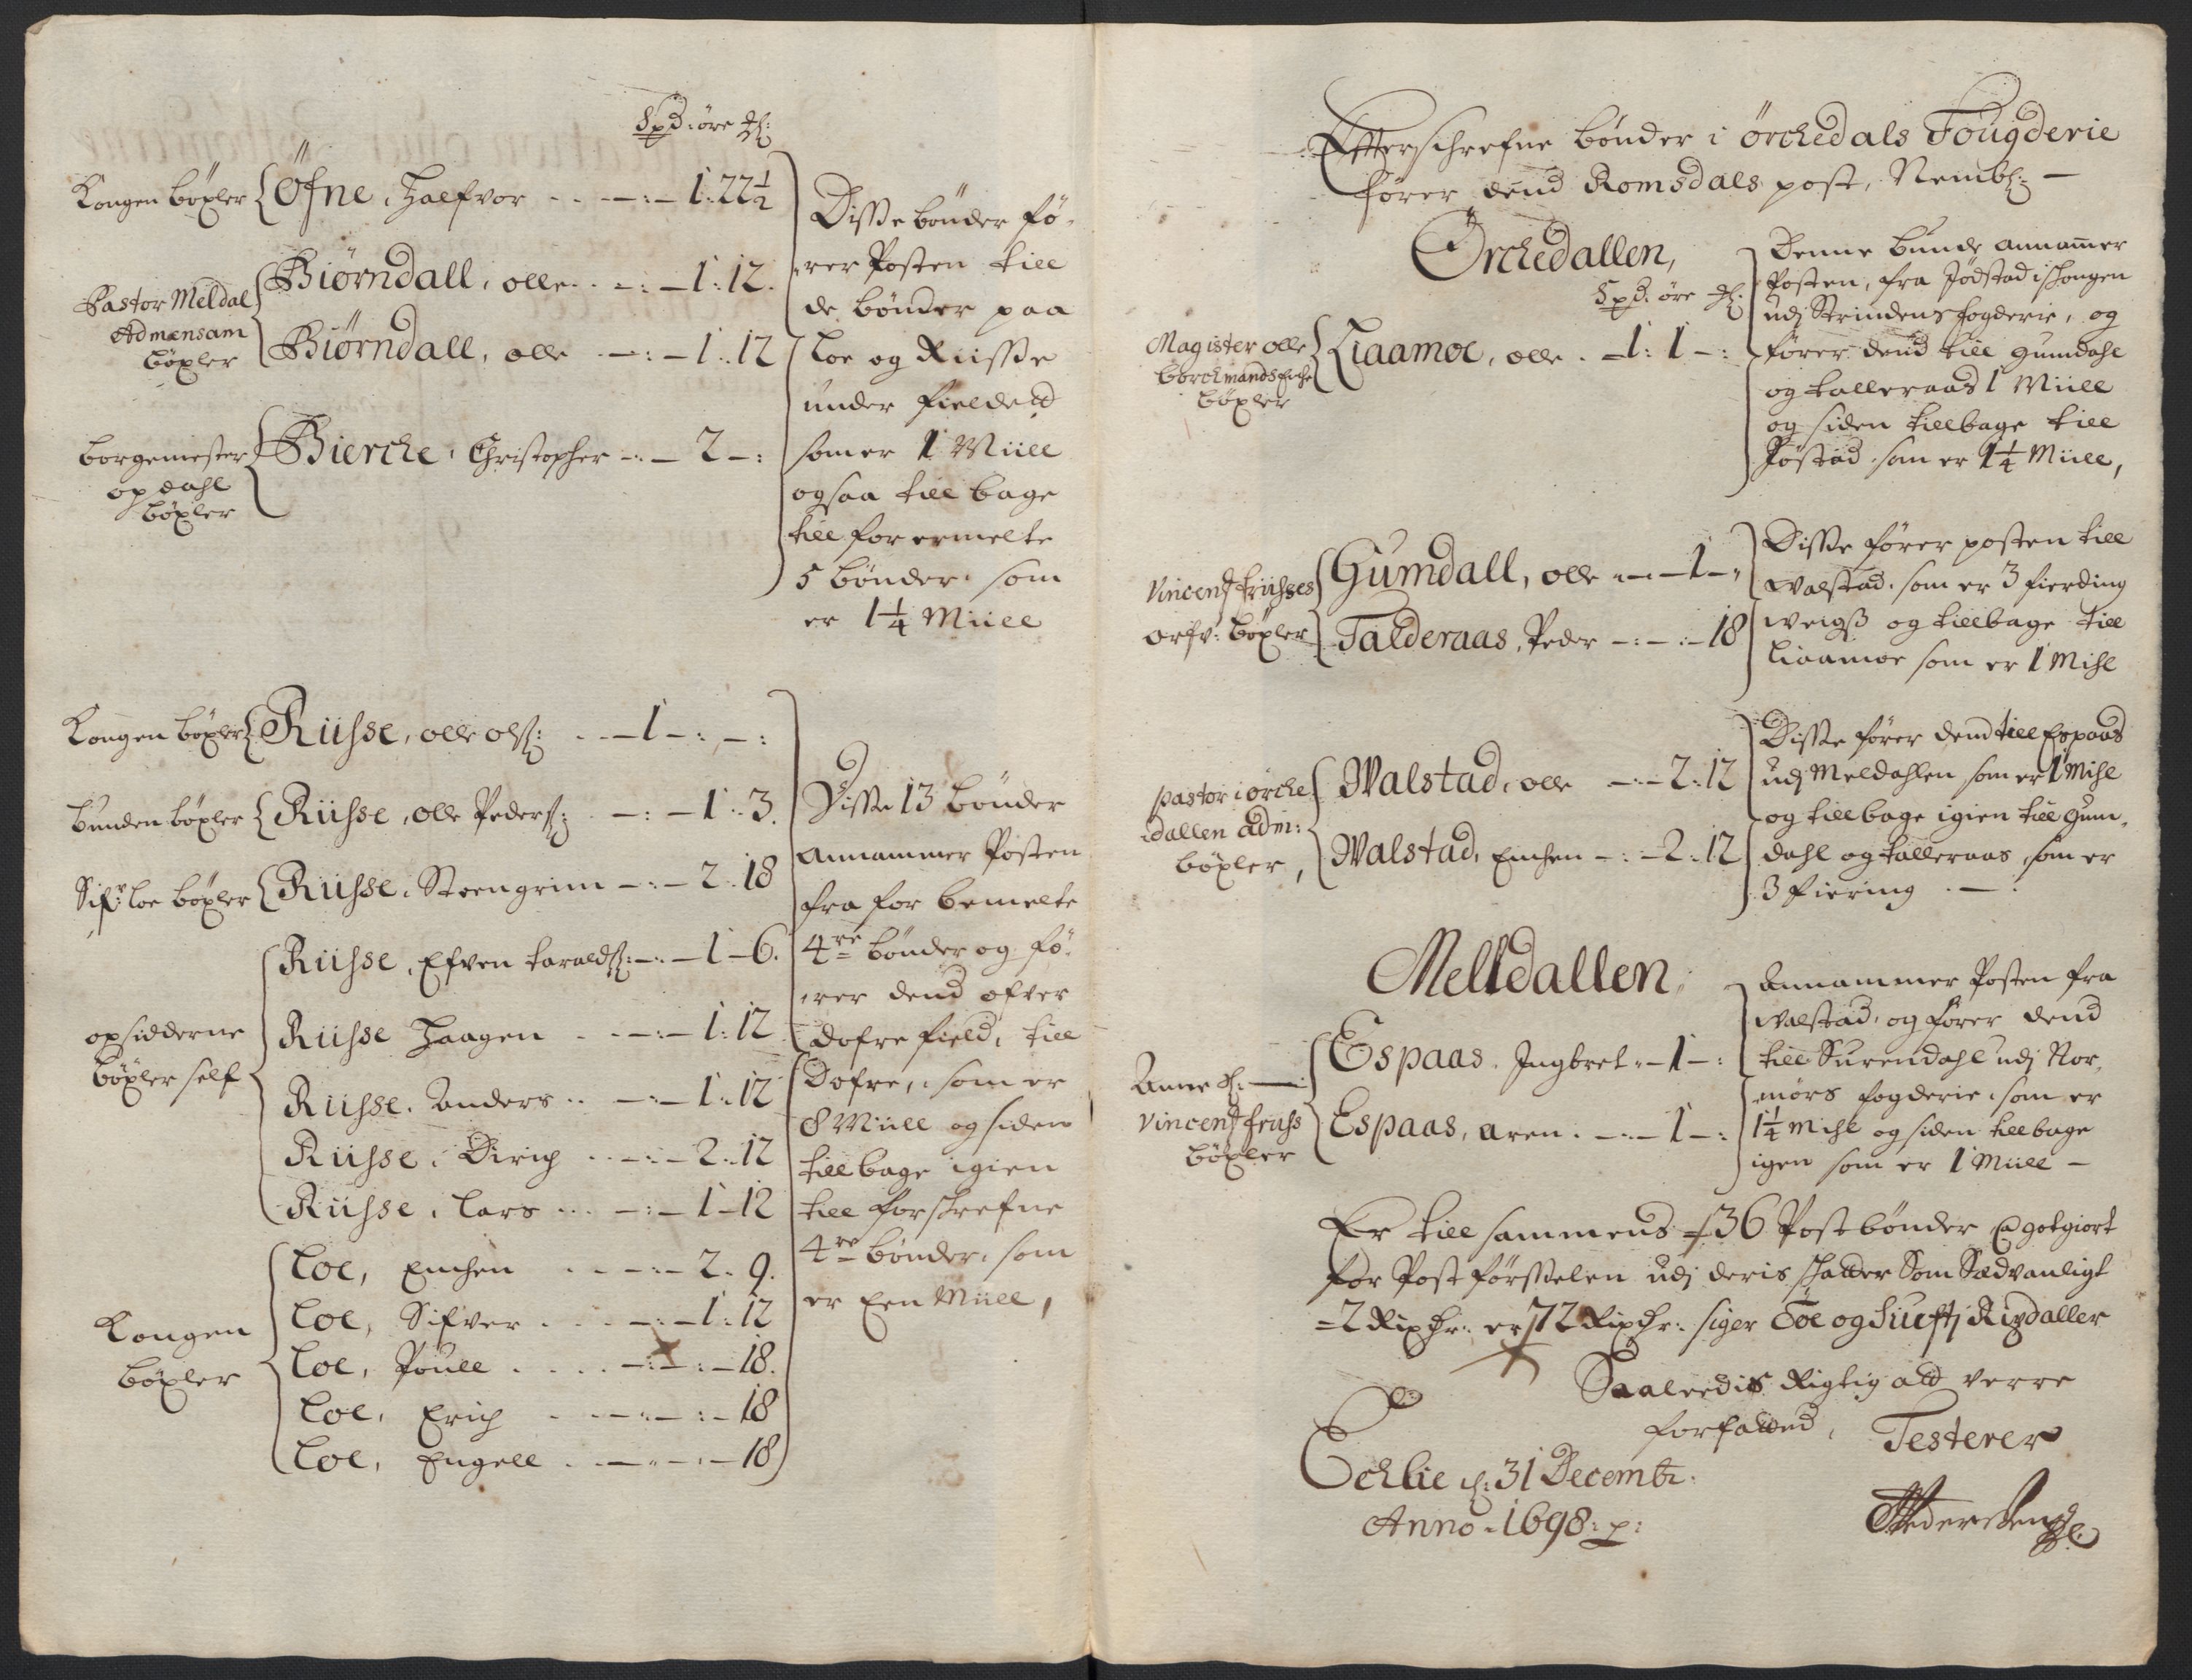 Spd: øre
Kongen bøxler Øfne, Halfvor .. -:- 1:22½
Pastor Meldal
Ad mænsam
bøxler
Biørndall, olle .. -:- 1:12.
Biørndall, olle .. -:- 1:12
borgemester
opdahl
bøxler
Bierche, Christopher -:- 2 -:
Disse bønder fø-
rer Posten till
de bønder paa
Loe og Riisse
under fieldet
som er 1 Miill
og saa till bage
till for ermelte
5 bønder som
er 1¼ Miill
Kongen bøxler Riisse, olle olss: .. - 1 -:-:
bunden bøxler Riisse, olle Pederss: -:- 1:3.
Sifr: loe bøxler Riisse, Steengrim -:- 2:18
opsidderne
bøxler self
Riisse, Efven taraldss: -:- 1-6.
Riisse Haagen . -:- 1:12
Riisse, Anders .. -:- 1:12
Riisse, Dirich .. -:- 2:12
Riisse, Lars ... -:- 1-12
Kongen
bøxler
Loe, Emhen .. -:- 2:9.
Loe, Sifver ... -:- 1:12
Loe, Poull .... -:-:- 18.
Loe, Erich .. -:-:- 18
Loe, Engell . -:-:- 18
Disse 13 bønder
annammer Posten
fra for bemelte
4re bønder og fø-
rer dend ofver
dofre field, till
Dofre, som er
8 Miill og siden
till bage igien
till forschrefne
4re bønder, som
er Een Miill,
Efterschrefne bønder i ørchedals Fougderie
fører dend Romsdals post, Nembl: -
Ørchedallen,
Spd: øre
Magister olle
borchmands Enche
bøxler
Liaamoe, olle . - 1: 1 -:
Denne bunde annammer
Posten, fra Jødstad i schongen
udj Strindens fogderie, og
fører dend till gumdahl
og talleraas 1 Miill
og siden tillbage till
Jøstad som er 1¼ Miill,
Vincentz friisses
arfv: bøxler
Gumdall, olle -:- 1 -:
Talderaas, Peder -:-:- 18
Disse fører posten till
Walstad som er 3 fierding
weigs og tillbage till
Liaamoe som er 1 Mihl
pastor i orche
dallen adm:
bøxler,
Walstad, olle -:- 2:12
Walstad, Emhen -:- 2:12
Disse fører dend till Espaas
udj Meldahlen som er 1 Mihl
og tillbage igien till Gum-
dahl og talleraas, som er
3 fiering . - :
Melldallen,
Anne
Vincentz friiss
bøxler
Espaas, Ingbret -:- 1 -:
Espaas, aren . -:- 1 -:
Annammer Posten fra
Walstad, og fører dend
till Surendahl udj Nor-
mørs fogderie, som er
1¼ Mihl og siden tillbage
igen som er 1 Miill -
Er till sammens 36 Postbønder godtgiort
for Post førsselen udj deris schatter Som Sædvanligt
2 Rixdr: er 72 Rixdr: siger Toe og Siufftj Rixdaller
Saaleedis Rigtig att verre
forfatted, Testerer
Echlie d: 31 Decembr:
Anno 1698: